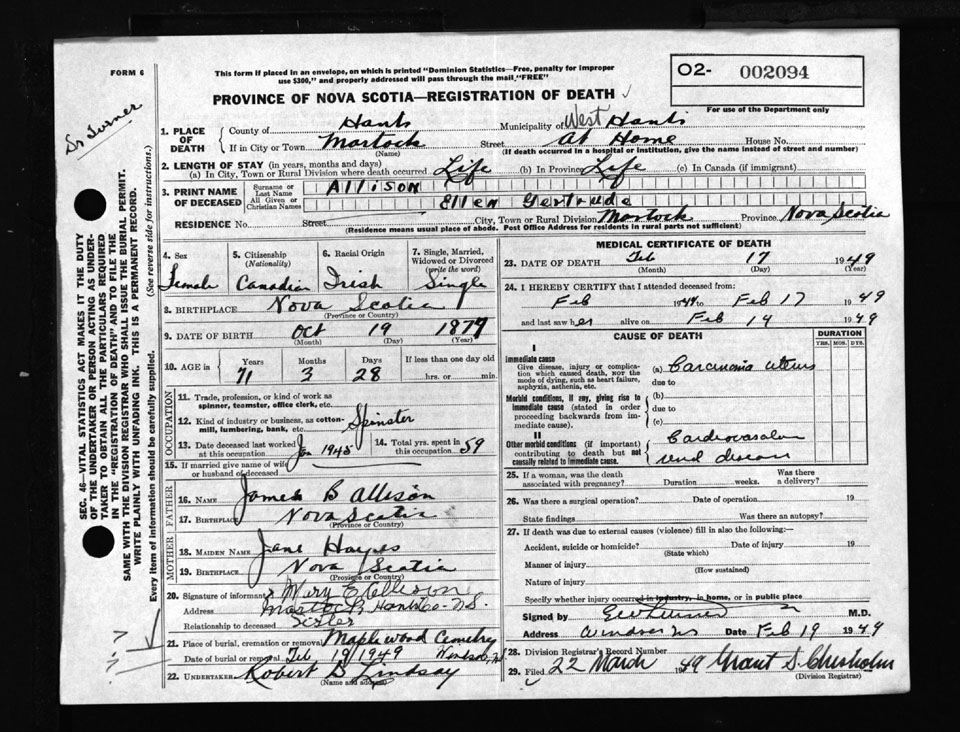 FORM 6
This form if placed in an envelope, on which is printed "Dominion Statistics—Free, penalty for improper
use $300," and properly addressed will pass through the mail, "FREE"
O2- 002094
For use of the Department only
PROVINCE OF NOVA SCOTIA—REGISTRATION OF DEATH
Dr Turner
1. PLACE OF DEATH
County of Hants Municipality of West Hants
If in City or Town Martock Street At Home House No.
(Name) (If death occurred in a hospital or institution, give the name instead of street and number)
2. LENGTH OF STAY (in years, months and days)
(a) In City, Town or Rural Division where death occurred Life (b) In Province Life (c) In Canada (if immigrant)
3. PRINT NAME OF DECEASED
Surname or Last Name Allison
All Given or Christian Names Ellen Gertrude
RESIDENCE No. Street City, Town or Rural Division Martock Province Nova Scotia
(Residence means usual place of abode. Post Office Address for residents in rural parts not sufficient)
4. Sex Female
5. Citizenship (Nationality) Canadian
6. Racial Origin Irish
7. Single, Married, Widowed or Divorced (write the word) Single
8. BIRTHPLACE Nova Scotia
(Province or Country)
9. DATE OF BIRTH Oct 19 1877
(Month) (Day) (Year)
10. AGE in Years Months Days If less than one day old
71 3 28 hrs. or min.
OCCUPATION
11. Trade, profession, or kind of work as
spinner, teamster, office clerk, etc.
12. Kind of industry or business, as cotton-
mill, lumbering, bank, etc. Spinster
13. Date deceased last worked at this occupation Jan 1948
14. Total yrs. spent in this occupation 59
15. If married give name of wife or husband of deceased
FATHER
16. NAME James B Allison
17. BIRTHPLACE Nova Scotia
(Province or Country)
MOTHER
18. MAIDEN NAME Jane Hayes
19. BIRTHPLACE Nova Scotia
(Province or Country)
20. Signature of informant Mary E Allison
Address Martock Hants Co. N.S.
Relationship to deceased Sister
21. Place of burial, cremation or removal Maplewood Cemetry
Date of burial or removal Feb 19 1949 Windsor, NS
22. UNDERTAKER Robert B Lindsay
(Name and address)
MEDICAL CERTIFICATE OF DEATH
23. DATE OF DEATH Feb 17 1949
(Month) (Day) (Year)
24. I HEREBY CERTIFY that I attended deceased from:
Feb to Feb 17 1949
and last saw her alive on Feb 14 1949
CAUSE OF DEATH
DURATION
YRS. MOS. DYS.
I
Immediate cause
Give disease, injury or complica-
tion which caused death, NOT the
mode of dying, such as heart failure,
asphyxia, asthenia, etc.
(a) Carcinoma uterus
due to
Morbid conditions, if any, giving rise to
immediate cause (stated in order
proceeding backwards from im-
mediate cause).
(b)
due to
(c)
II
Other morbid conditions (if important)
contributing to death but not
causally related to immediate cause.
Cardiovascular
renal disease
25. If a woman, was the death associated with pregnancy? Duration weeks. Was there a delivery?
26. Was there a surgical operation? Date of operation 19
State findings Was there an autopsy?
27. If death was due to external causes (violence) fill in also the following:—
Accident, suicide or homicide? Date of injury 19
(State which)
Manner of injury
(How sustained)
Nature of injury
Specify whether injury occurred in industry, in home, or in public place
Signed by Geo Turner M.D.
Address Windsor NS Date Feb 19 1949
28. Division Registrar's Record Number
29. Filed 22 March 1949 Grant S. Chisholm
(Division Registrar)
SEC. 46—VITAL STATISTICS ACT MAKES IT THE DUTY
OF THE UNDERTAKER OR PERSON ACTING AS UNDER-
TAKER TO OBTAIN ALL THE PARTICULARS REQUIRED
IN THE "REGISTRATION OF DEATH" AND TO FILE THE
SAME WITH THE DIVISION REGISTRAR WHO SHALL ISSUE THE BURIAL PERMIT.
WRITE PLAINLY WITH UNFADING INK. THIS IS A PERMANENT RECORD.
Every item of information should be carefully supplied. (See reverse side for instructions.)